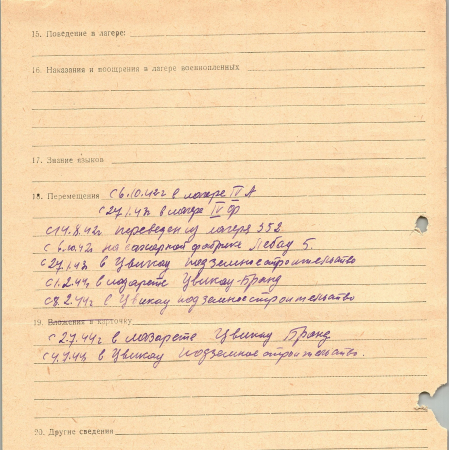 15. Поведение в лагере:
16. Наказания и поощрения в лагере военнопленных
17. Знание языков
18. Перемещения с 6.10.42г в лагере IV А
с 27.1.43 в лагере IV Ф
с 14.8.42г переведен из лагеря 352
с 6.10.42 на сахарной фабрике Лебау 5.
с 27.1.43 в Цвикау подземное строительство
в лазарете Цвикау-Бранд
с 8.2.44г в Цвикау подземное строительство
19. Вложения в карточку
с 2.7.44г в лазарете Цвикау Бранд
с 4.7.44 в Цвикау подземное строительство.
20. Другие сведения